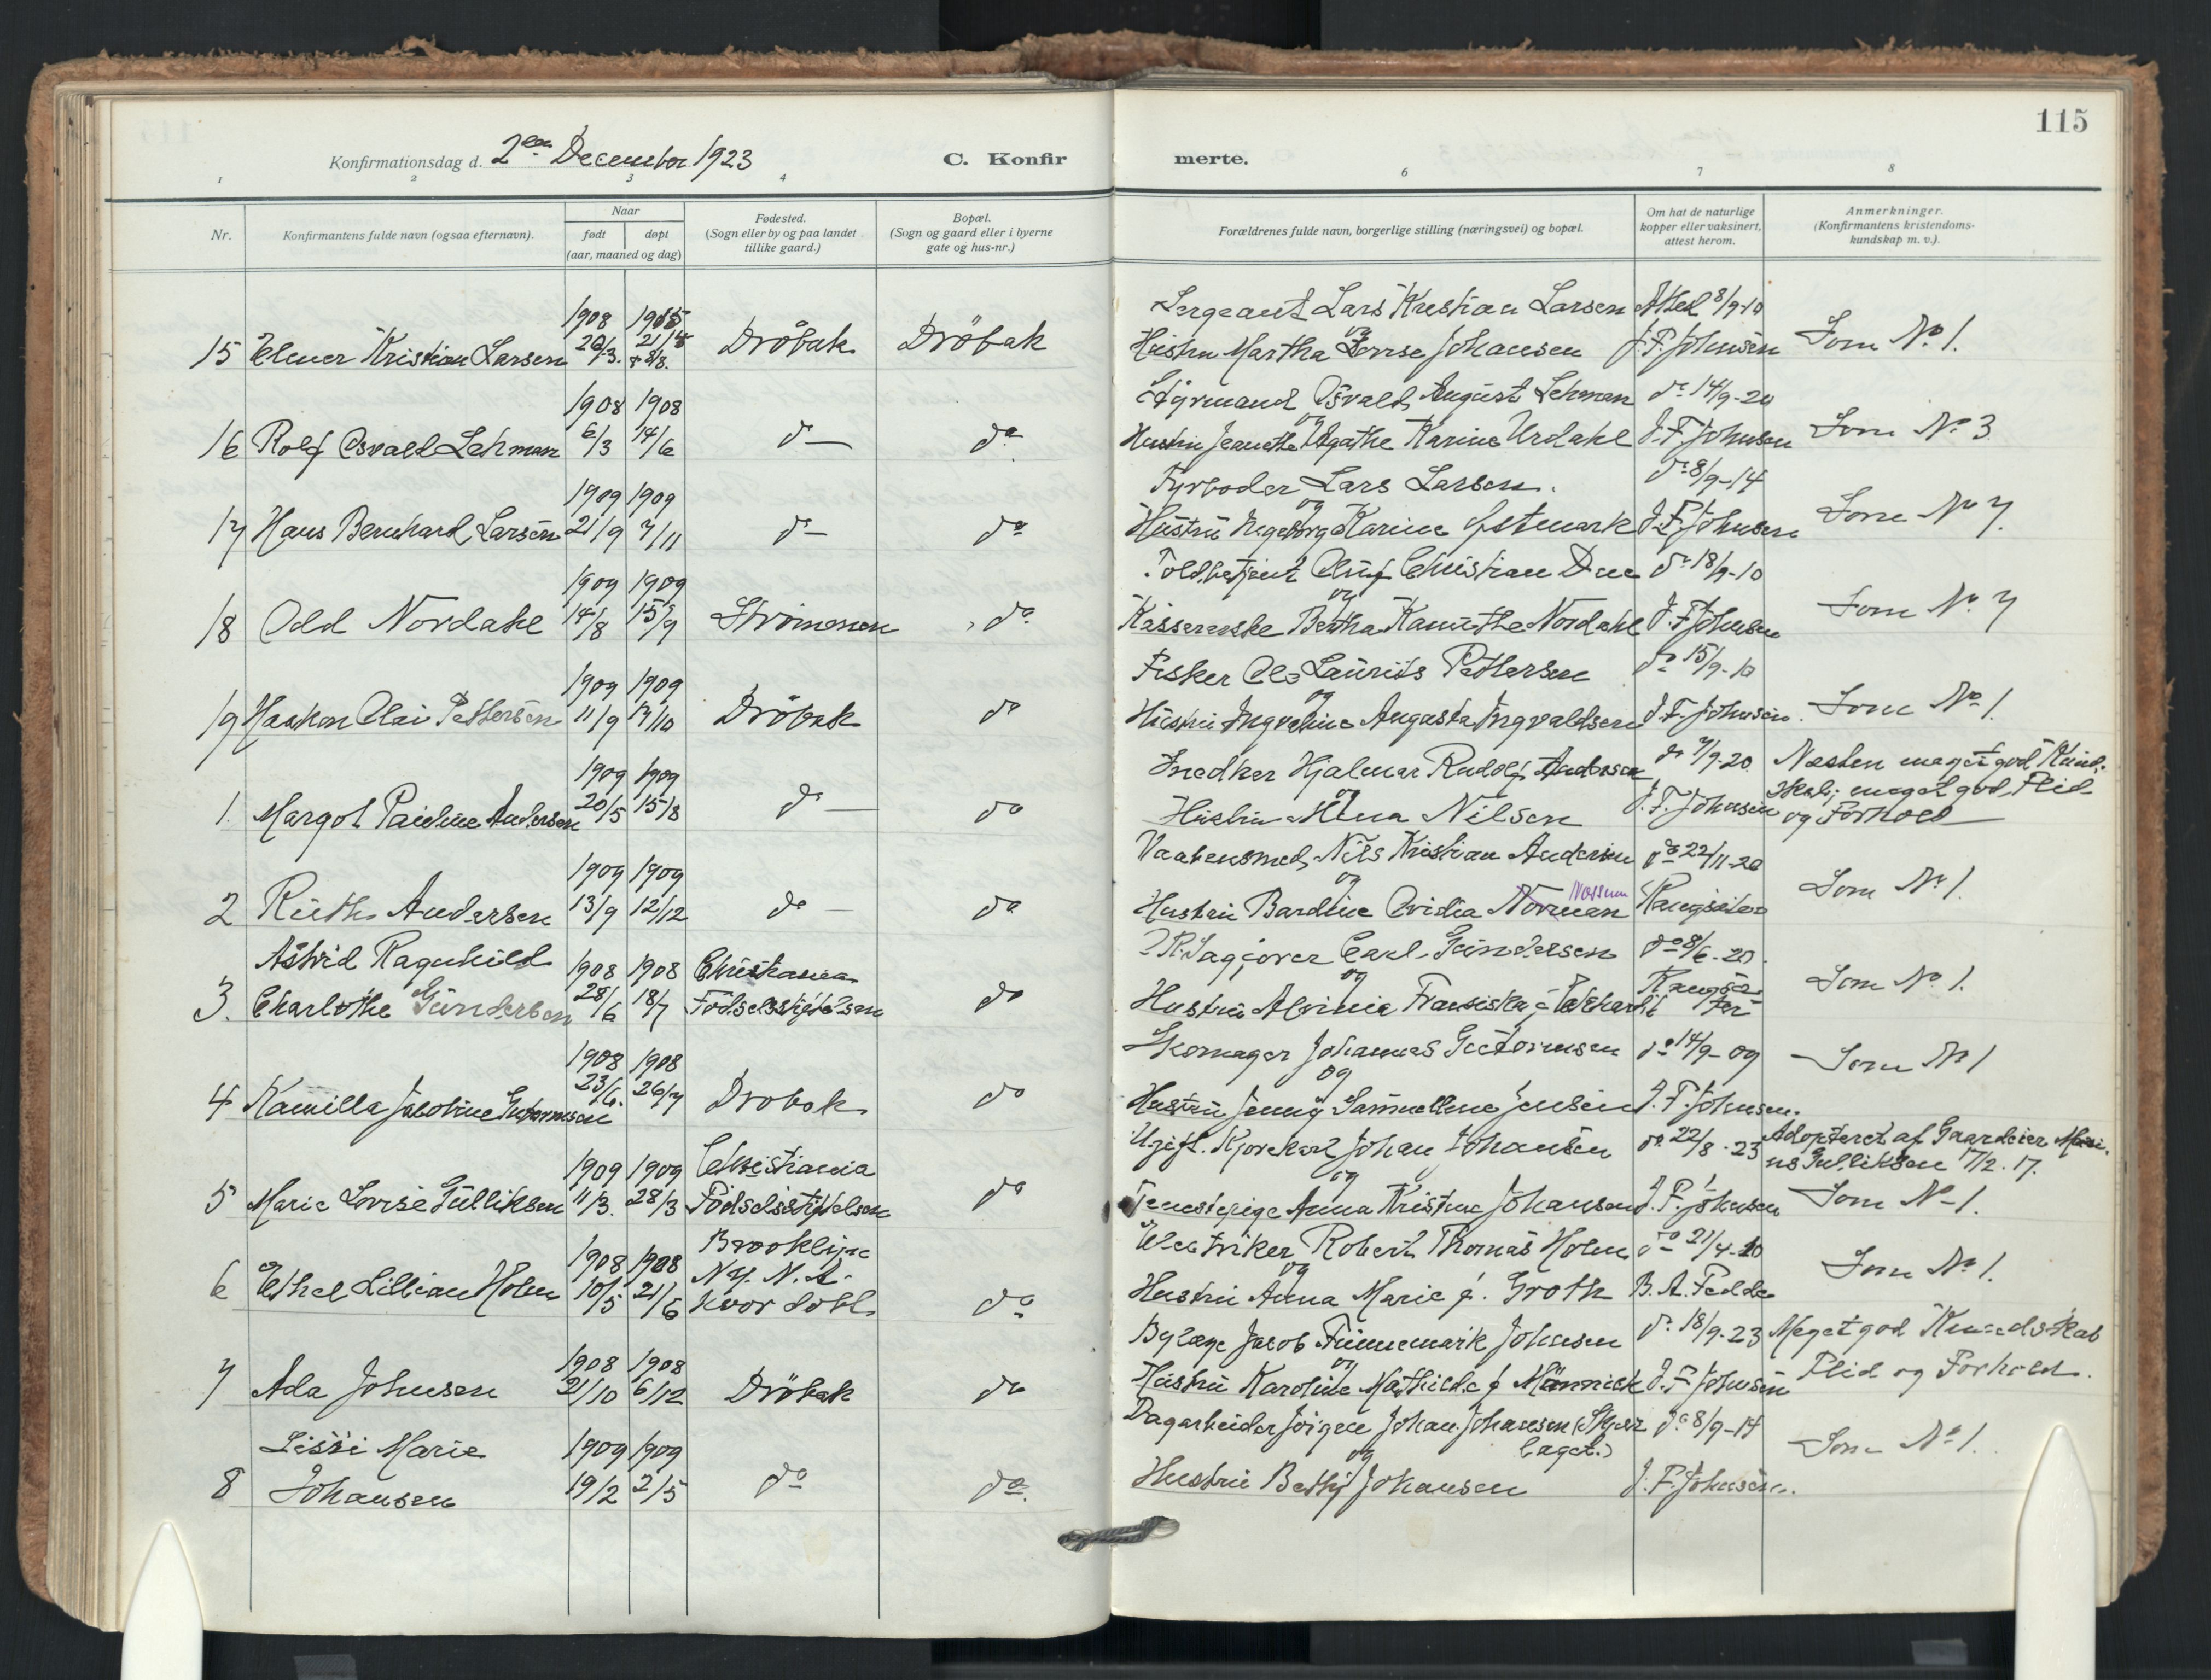 115
Konfirmationsdag d. 2den December 1923
C. Konfirmerte.
1 2 3 4 6 7 8
Nr.
Konfirmantens fulde navn (ogsaa efternavn).
Naar
født døpt
(aar, maaned og dag)
Fødested.
(Sogn eller by og paa landet
tillike gaard.)
Bopæl.
(Sogn og gaard eller i byerne
gate og hus-nr.)
Forældrenes fulde navn, borgerlige stilling (næringsvei) og bopæl.
Om hat de naturlige
kopper eller vaksinert,
attest herom.
Anmerkninger.
(Konfirmantens kristendoms-
kundskap m. v.).
1908 Sergeant Lars Kristian Larsen Attest 8/9-10
15 Elmer Kristian Larsen Drøbak Drøbak og Hustru Martha Johansen J.F. Johnsen Som No 1.
1908 1908 Styrmand Osvald August Lehman do 14/9-20
16 Rolf Osvald Lehman 6/3 14/6 do do og Hustru Jeanette Agathe Karine Urdahl J.F. Johnsen Som No 3
1909 1909 Fyrbøder Lars Larsen. do 8/9-14
17 Hans Bernhard Larsen 21/9 7/11 do do og Hustru Ingeborg Karine Østmark J.F. Johnsen Som No 7.
1909 1909 Toldbetjent Oluf Christian Due do 18/9-10
18 Odd Nordahl 14/8 15/9 Strømmen do og Kassererske Bertha Kamitha Nordahl J.F. Johnsen Som No 7
1909 1909 Fisker Ole Laurits Pettersen do 15/9-10
19 Haakon Olai Pettersen 11/9 17/10 Drøbak do og Hustru Ingveline Augusta Ingvaldsen J.F. Johnsen. Som No 1.
1909 1909 Snedker Hjalmar Rudolf Andersen do 7/9-20 Næsten meget god Kund-
1. Margot Pauline Andersen 20/5 15/8 do do og Hustru Mina Nilsen J.F. Johnsen skab; meget god Flid
og Forhold
1909 1909 Vaabensmed Nils Kristian Andersen do 22/11-20
2 Ruth Andersen 13/9 12/12 do do og Hustru Bardine Ovidia Norman Nossum Rangsæter Som No 1.
Astrid Ragnhild 1908 1908 Christiania O.R. Sagfører Carl Gundersen do 8/6-20.
3. Charlothe Gundersen 28/6 18/7 Fødselsstiftelsen do og Hustru Alvinia Fransiska f. Eckhardt Rangsæter Som No 1.
1908 1908 Skomager Johannes Guttormsen do 14/9-09
4 Kamilla Jacobine Guttormsen 23/6. 26/7 Drøbak do og Hustru Jenny Samueline Jensen J.F. Johnsen. Som No 1
1909 1909 Christiania Ugift. Kjørekarl Johan Johansen do 22/8-23 Adopteret af Gaardeier Mari-
us Gulliksen 17/2.17.
5 Marie Lovise Gulliksen 11/3. 28/3 Fødselsstiftelsen do og Tjenestepige Anna Kristine Johansen J.F. Johnsen Som No 1.
1908 1908 Brooklyn Elektriker Robert Thomas Holm do 21/4-10
6 Ethel Lillian Holm 10/5 21/6 N.Y. N.A. hvor døbt do og Hustru Anna Marie f. Groth B.A. Fedde Som No 1.
1908 1908 Bylæge Jacob Finnemark Johnsen do 18/9-23 Meget god Kundskab
7 Ada Johnsen 21/10 6/12 Drøbak do og Hustru Karoline Mathilde f Männich J.F. Johnsen Flid og Forhold.
Lissi Marie 1909 1909 Dagarbeider Jørgen Johan Johansen do 8/9-14
8 Johansen 19/2 2/5 do do. og Hustru Bethy Johansen J.F. Johnsen. Som No 1.